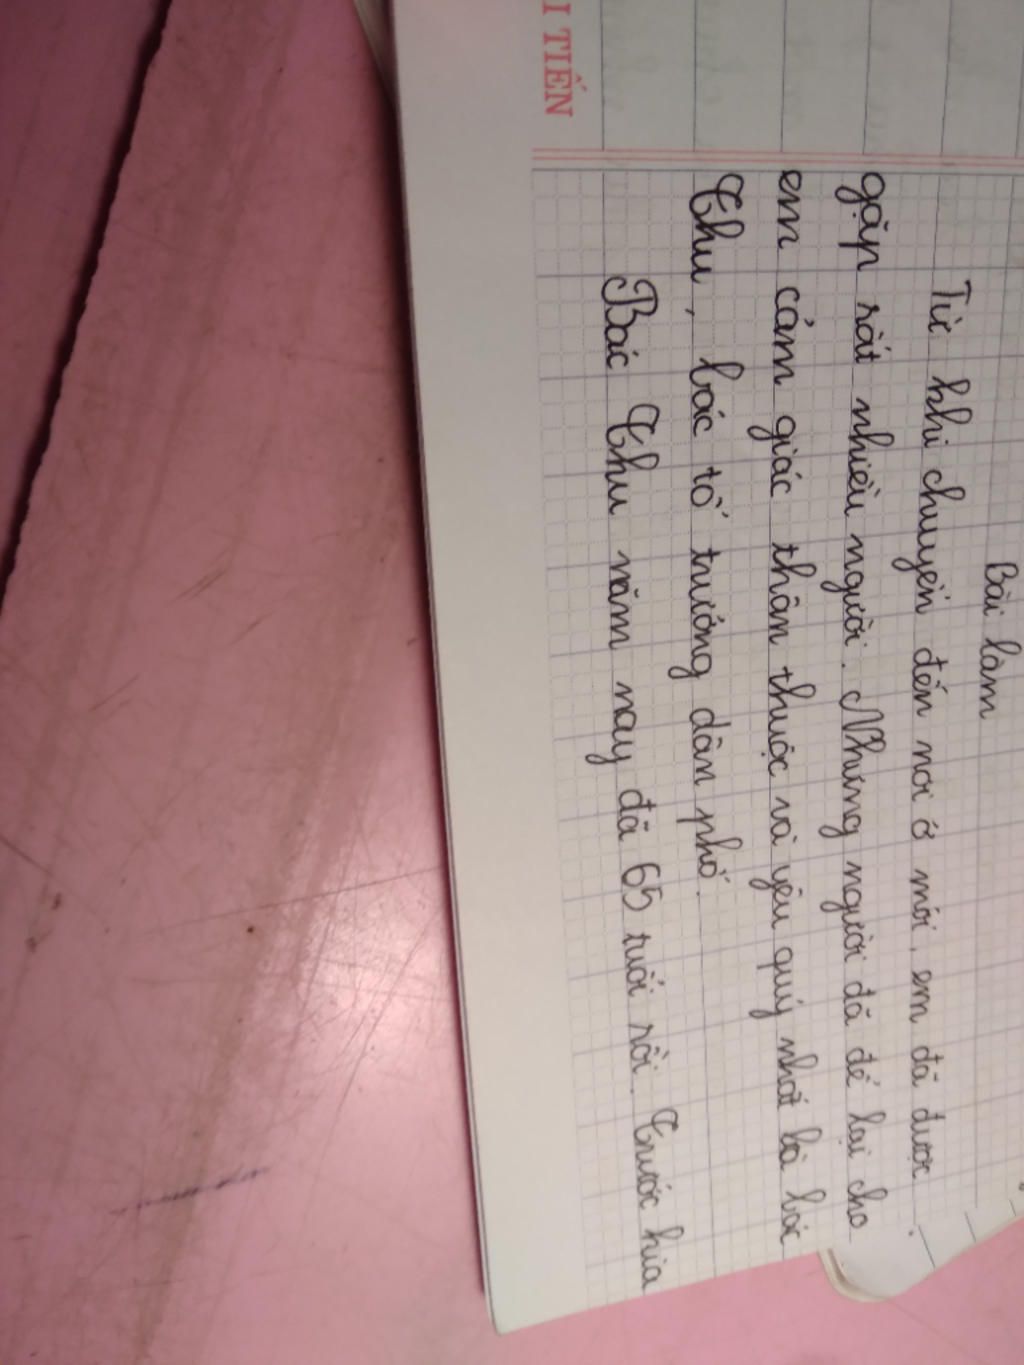 I TIẾN
Bài làm
Từ khi chuyển đến nơi ở mới, em đã được
gặp rất nhiều người. Nhưng người đã để lại cho
em cảm giác thân thuộc và yêu quý nhất là bác
Thu, bác tổ trưởng dân phố.
Bác Thu năm nay đã 65 tuổi rồi. Trước kia